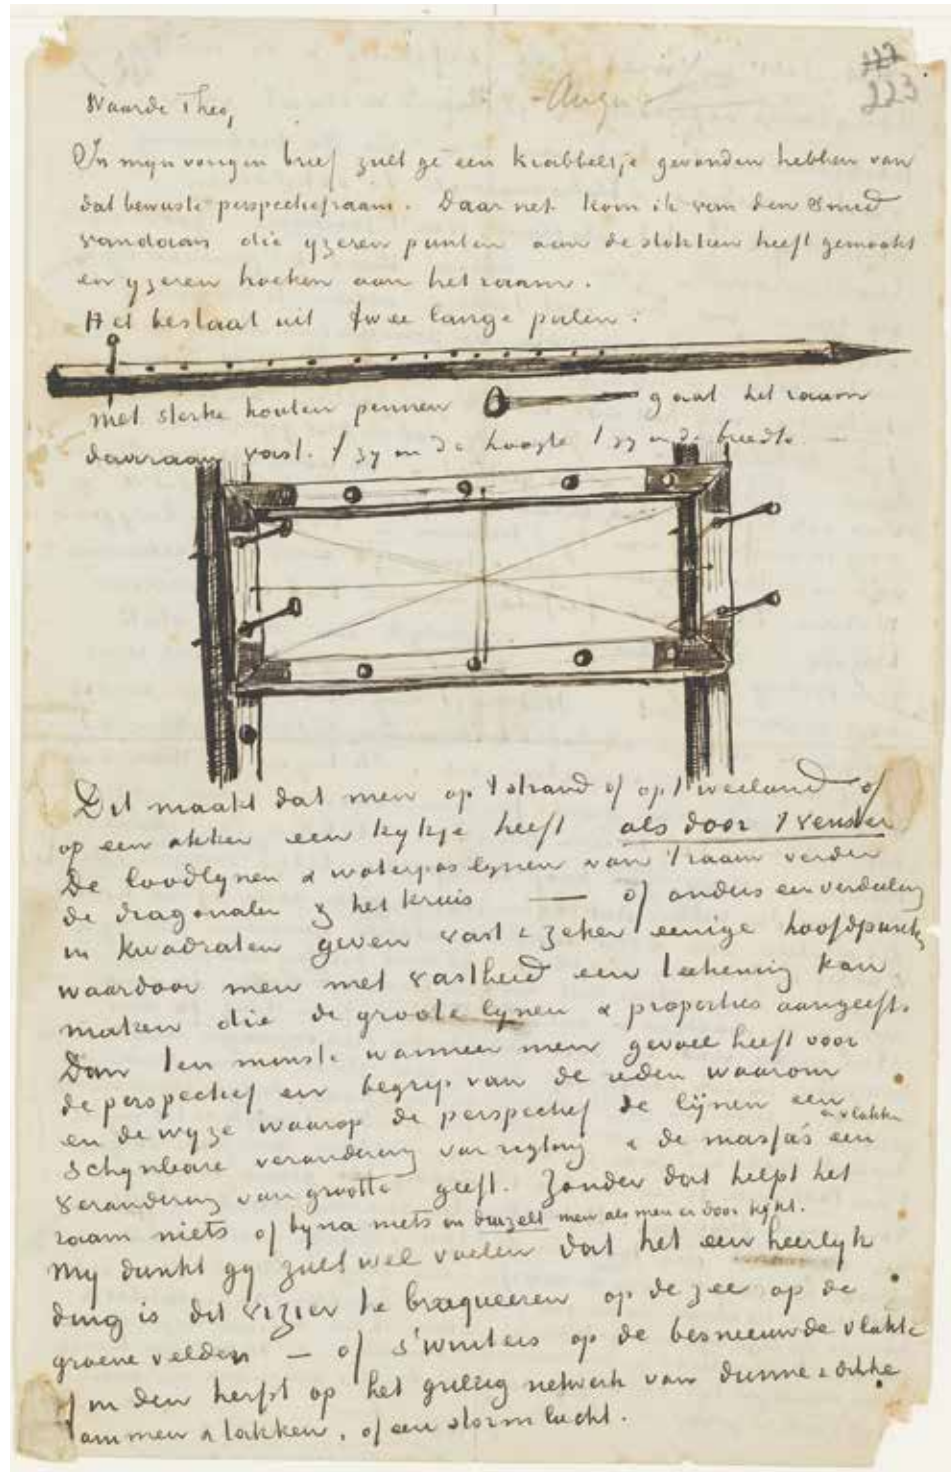 Augus
117
223
Waarde Theo,
In mijn vorigen brief zult ge een krabbeltje gevonden hebben van
dat bewuste perspectiefraam. Daar net kom ik van den smid
vandaan die yzeren punten aan de stokken heeft gemaakt
en yzeren hoeken aan het raam.
Het bestaat uit twee lange palen:
met sterke houten pennen gaat het raam
daaraan vast. 't zy in de hoogte 't zy in de breedte. —
Dit maakt dat men op 't strand of op 't weiland of
op een akker een kykje heeft als door 't venster
De loodlynen & waterpaslynen van 't raam verder
de diagonalen & het kruis — of anders een verdeeling
in kwadraten geven vast & zeker eenige hoofdpunten
waardoor men met vastheid een teekening kan
maken die de groote lynen & proporties aangeeft.
Dan ten minste wanneer men gevoel heeft voor
de perspectief en begryp van de reden waarom
en de wyze waarop de perspectief de lijnen een
schynbare verandering van rigting & de massa's en vlakken een
verandering van grootte geeft. Zonder dat helpt het
raam niets of byna niets en duizelt men als men er door kykt.
My dunkt gy zult wel voelen dat het een heerlyk
ding is dit vizier te braqueeren op de zee op de
groene velden — of s'winters op de besneeuwde vlakte
of in den herfst op het grillig netwerk van dunne & dikke
stammen & takken, of een stormlucht.